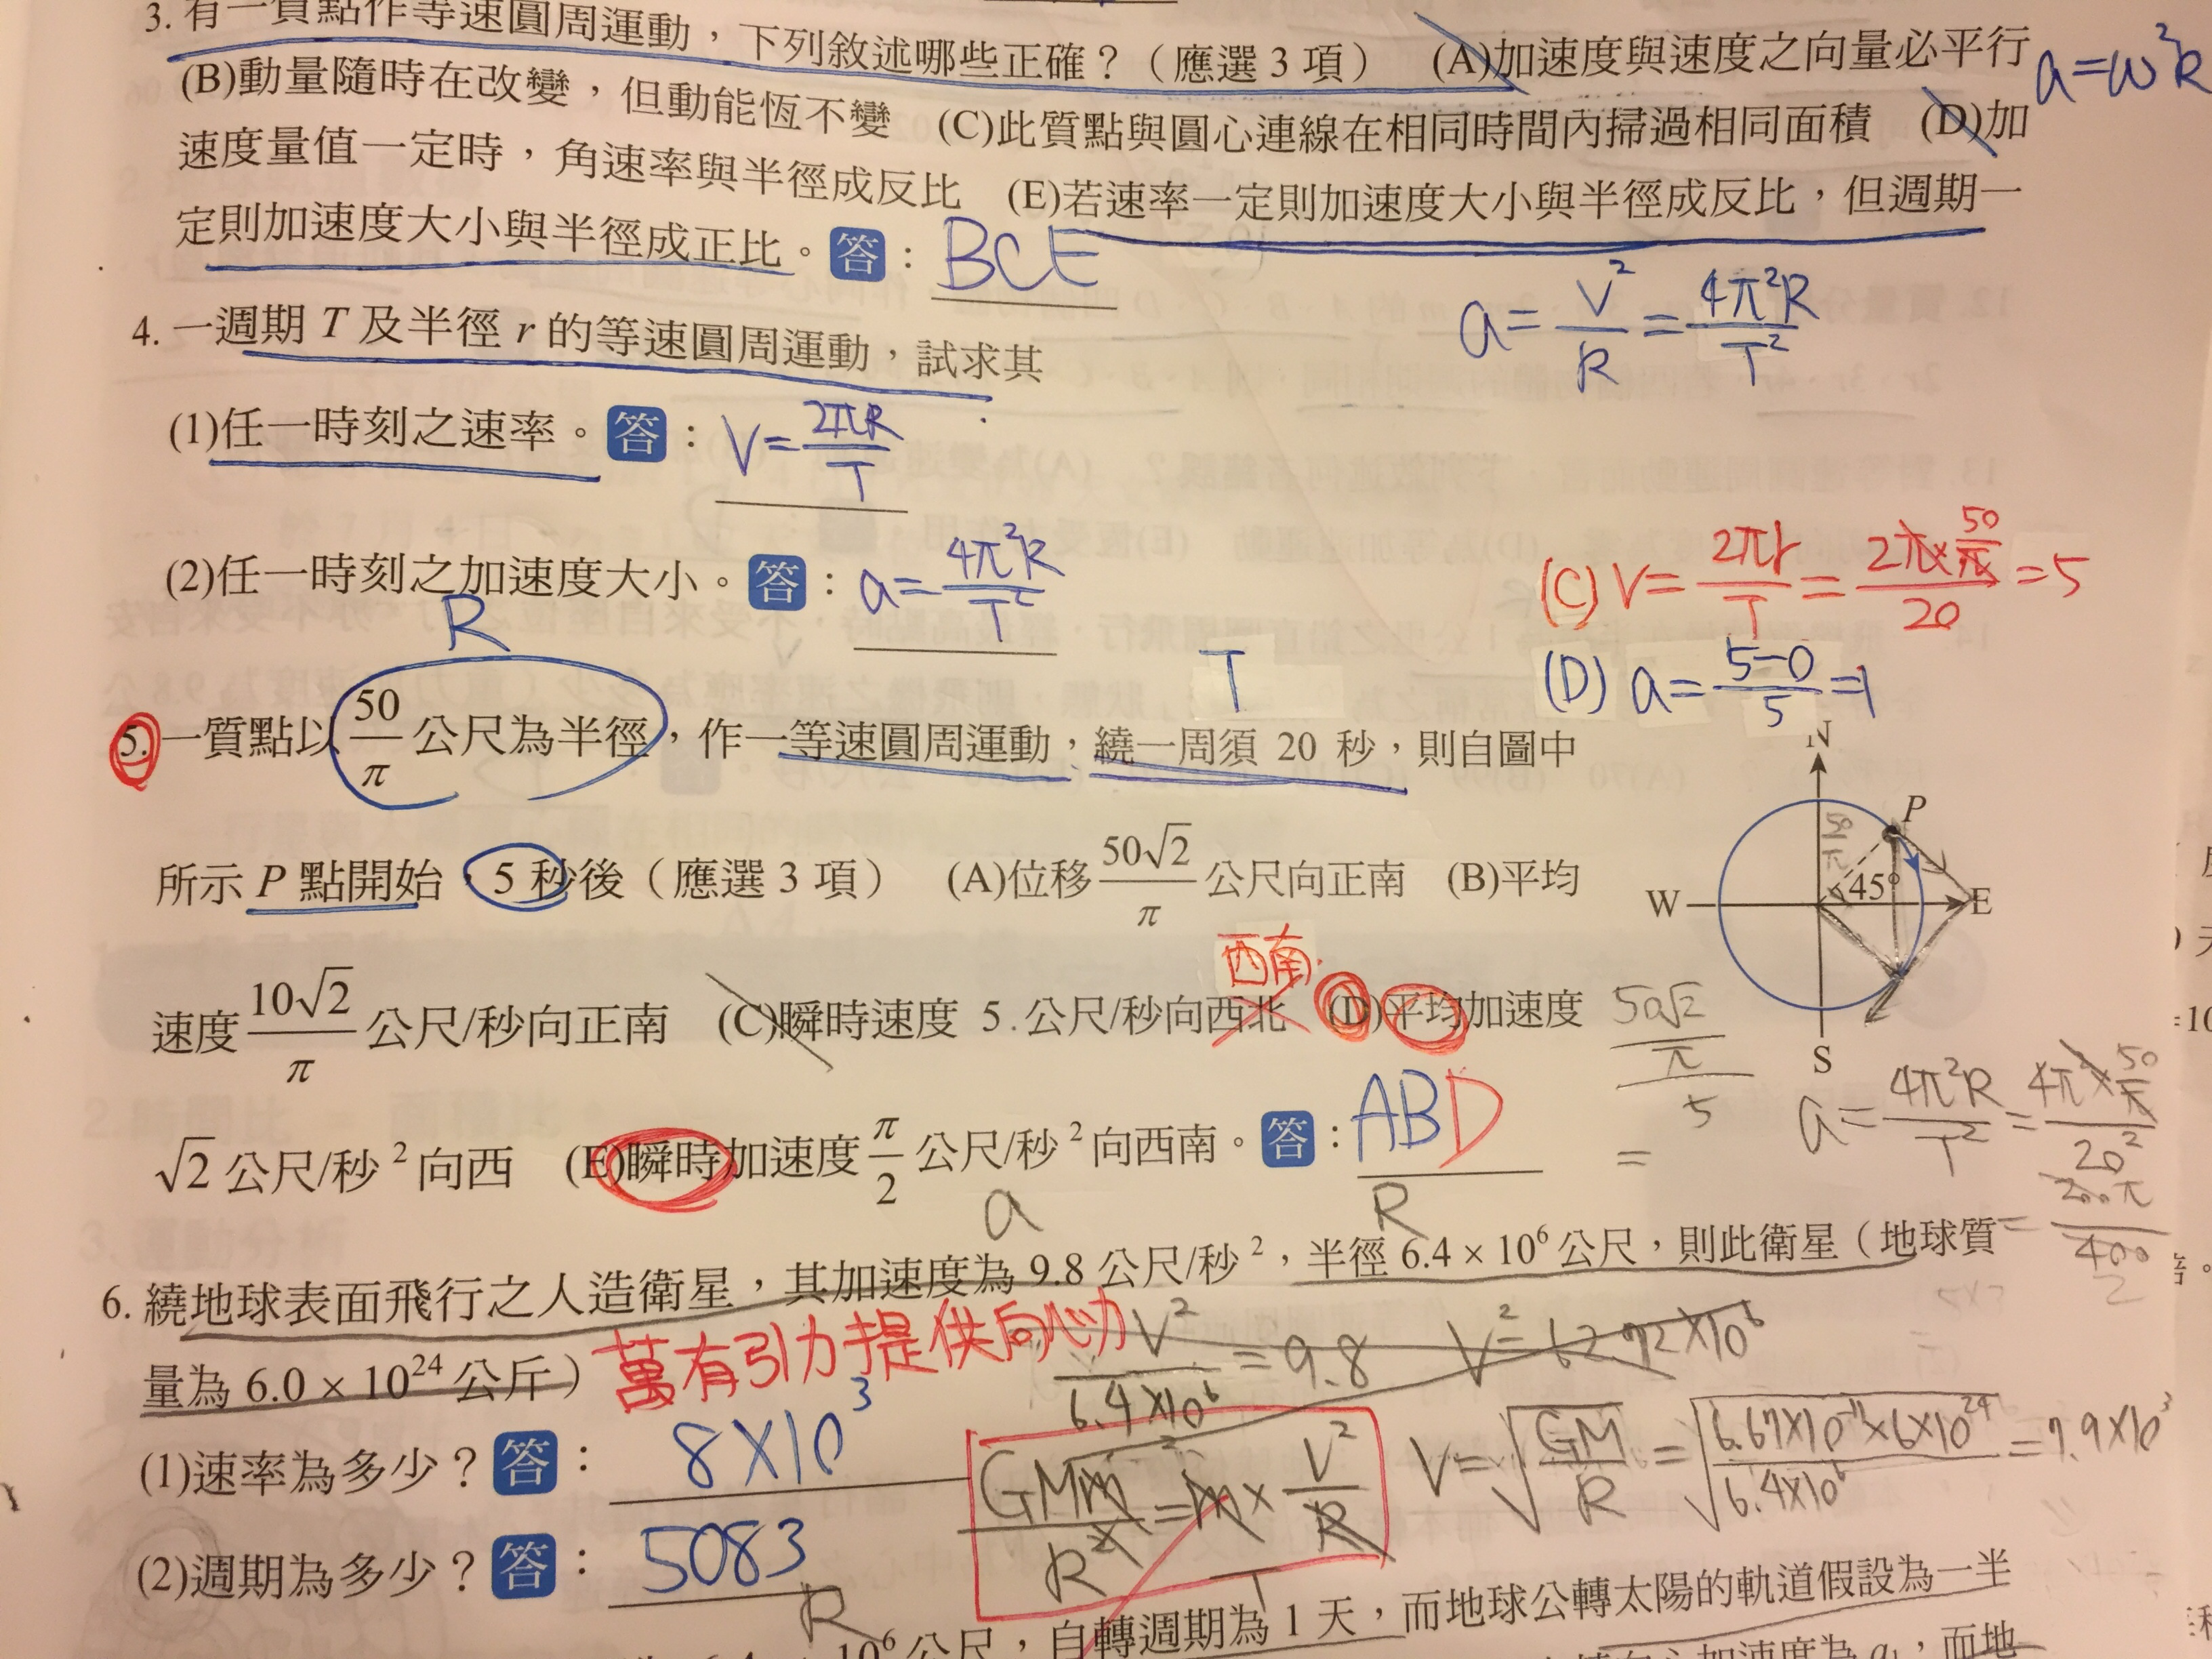 3. 有一質點作等速圓周運動，下列敘述哪些正確？（應選 3 項） (A)加速度與速度之向量必平行
a=ω²R
(B)動量隨時在改變，但動能恆不變 (C)此質點與圓心連線在相同時間內掃過相同面積 (D)加
速度量值一定時，角速率與半徑成反比 (E)若速率一定則加速度大小與半徑成反比，但週期一
定則加速度大小與半徑成正比。答：BCE
a=V²/R=4π²R/T²
4. 一週期 T 及半徑 r 的等速圓周運動，試求其
(1)任一時刻之速率。答：V=2πR/T
(2)任一時刻之加速度大小。答：a=4π²R/T²
(C) V=2πr/T=2π×50/π/20=5
(D) a=5-0/5=1
R
T
5. 一質點以 50/π 公尺為半徑，作一等速圓周運動，繞一周須 20 秒，則自圖中
所示 P 點開始，5 秒後（應選 3 項） (A)位移 50√2/π 公尺向正南 (B)平均
西南
速度 10√2/π 公尺/秒向正南 (C)瞬時速度 5.公尺/秒向西北 (D)平均加速度
√2 公尺/秒² 向西 (E)瞬時加速度 π/2 公尺/秒² 向西南。答：ABD
N
P
50/π
45°
W
E
S
50√2/π/5
=
a=4π²R/T²=4π²×50/π/20²
=200π/400
2
a
R
6. 繞地球表面飛行之人造衛星，其加速度為 9.8 公尺/秒²，半徑 6.4 × 10⁶ 公尺，則此衛星（地球質
量為 6.0 × 10²⁴ 公斤）
萬有引力提供向心力
V²/6.4×10⁶=9.8 V²=62.72×10⁶
(1)速率為多少？答：8×10³
GMm/R²=m×V²/R
V=√GM/R=√6.67×10⁻¹¹×6×10²⁴/6.4×10⁶=7.9×10³
(2)週期為多少？答：5083
R
T
10⁶ 公尺，自轉週期為 1 天，而地球公轉太陽的軌道假設為一半